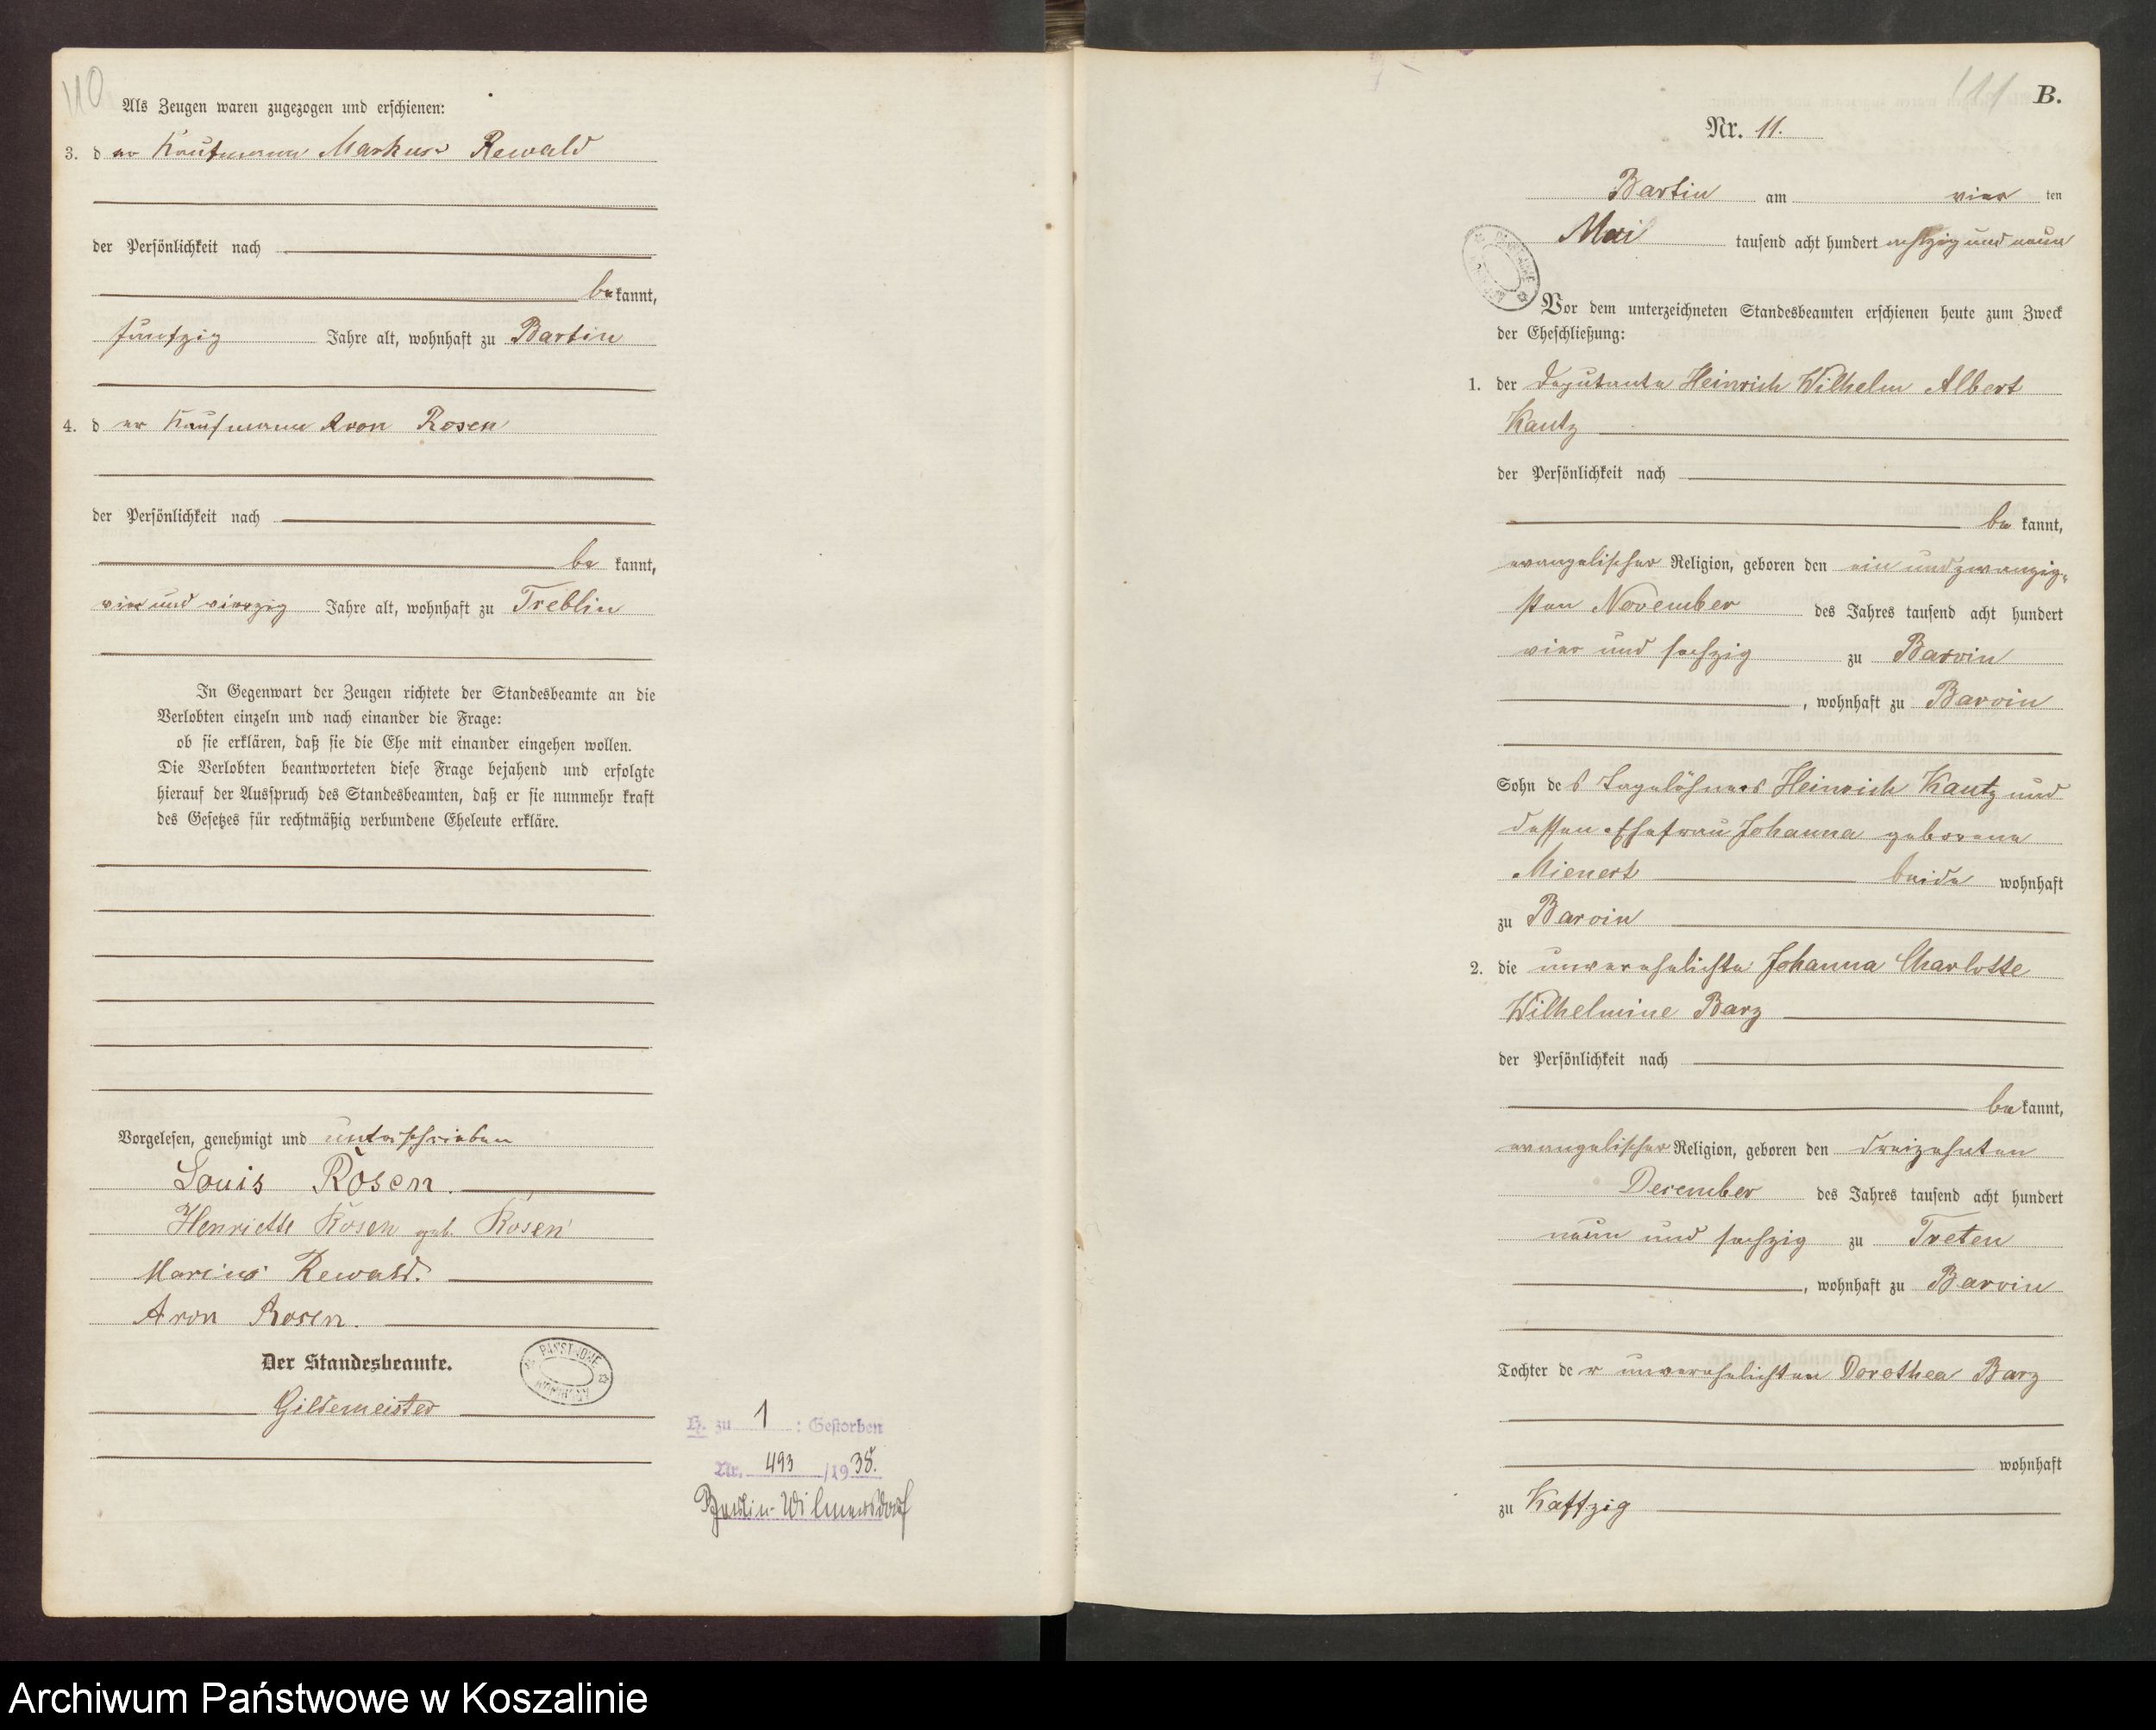 110
Als Zeugen waren zugezogen und erschienen:
3. d er Kaufmann Markus Rewald
der Persönlichkeit nach
be kannt,
fünfzig Jahre alt, wohnhaft zu Bartin
4. d er Kaufmann Aron Rosen
der Persönlichkeit nach
be kannt,
vier und vierzig Jahre alt, wohnhaft zu Treblin
In Gegenwart der Zeugen richtete der Standesbeamte an die
Verlobten einzeln und nach einander die Frage:
ob sie erklären, daß sie die Ehe mit einander eingehen wollen.
Die Verlobten beantworteten diese Frage bejahend und erfolgte
hierauf der Ausspruch des Standesbeamten, daß er sie nunmehr kraft
des Gesetzes für rechtmäßig verbundene Eheleute erkläre.
Vorgelesen, genehmigt und unterschrieben
Louis Rosen.
Henriette Rosen geb. Rosen
Marcus Rewald.
Aron Rosen.
Der Standesbeamte.
Gildemeister
H. zu 1 : Gestorben
Nr. 493 /19 38.
Berlin-Wilmersdorf
111
B.
Nr. 11.
Bartin am vier ten
Mai tausend acht hundert achtzig und neun
Vor dem unterzeichneten Standesbeamten erschienen heute zum Zweck
der Eheschließung:
1. der Deputante Heinrich Wilhelm Albert
Kautz
der Persönlichkeit nach
be kannt,
evangelischer Religion, geboren den ein und zwanzig-
sten November des Jahres tausend acht hundert
vier und sechzig zu Barvin
, wohnhaft zu Barvin
Sohn de s Tagelöhners Heinrich Kautz und
dessen Ehefrau Johanna geborene
Mienert beide wohnhaft
zu Barvin
2. die unverehelichte Johanna Charlotte
Wilhelmine Barz
der Persönlichkeit nach
be kannt,
evangelischer Religion, geboren den dreizehnten
December des Jahres tausend acht hundert
neun und sechzig zu Treten
, wohnhaft zu Barvin
Tochter de r unverehelichten Dorothea Barz
wohnhaft
zu Kaffzig
Archiwum Państwowe w Koszalinie